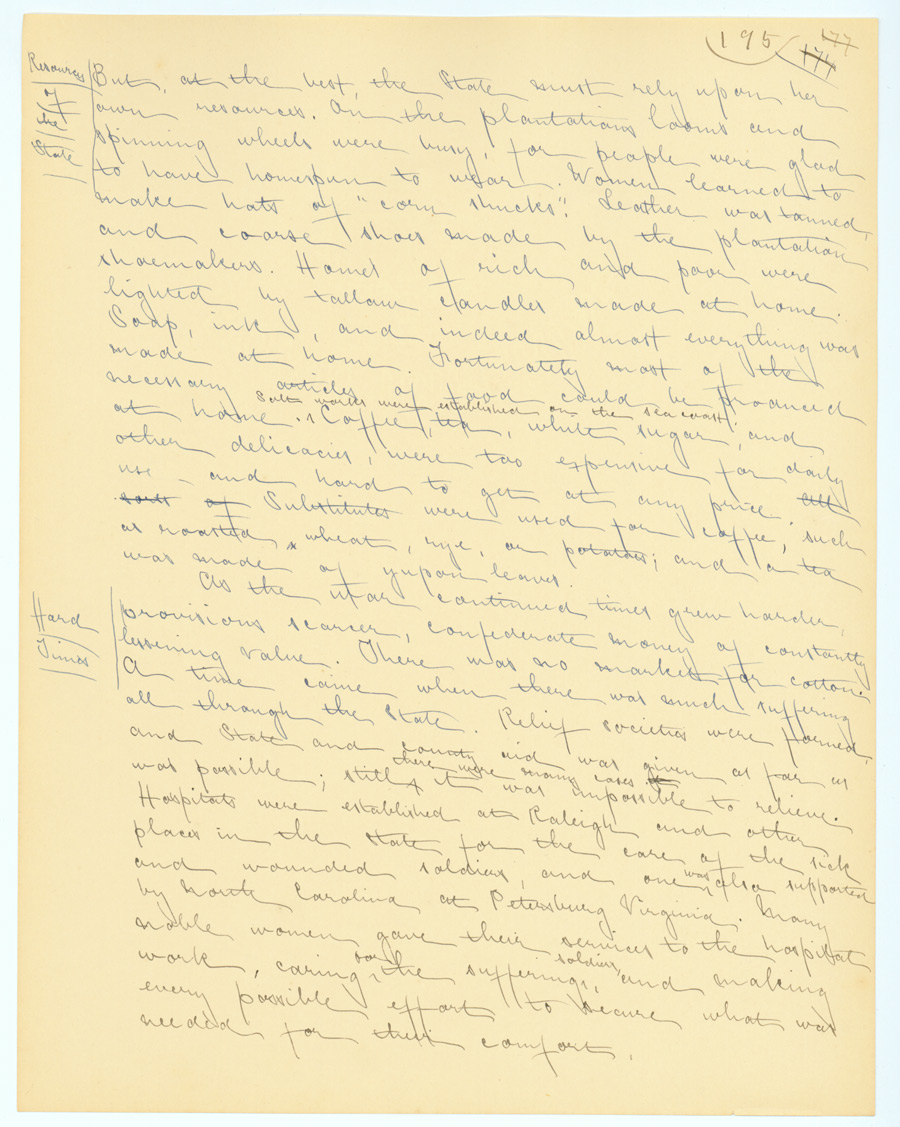 195
177
174
Resources
of
the
State
But, at the best, the State must rely upon her
own resources. On the plantations looms and
spinning wheels were busy, for people were glad
to have homespun to wear. Women learned to
make hats of "corn shucks". Leather was tanned,
and coarse shoes made by the plantation
shoemakers. Homes of rich and poor were
lighted by tallow candles made at home.
Soap, ink, and indeed almost everything was
made at home. Fortunately most of the
necessary articles of food could be produced
Salt works were established on the sea coast.
at home. Coffee, tea, white sugar, and
other delicacies, were too expensive for daily
use - and hard to get at any price. All
sorts of Substitutes were used for coffee, such
as roasted wheat, rye, or potatoes; and a tea
was made of yupon leaves.
Hard
Times
As the war continued times grew harder,
provisions scarcer, confederate money of constantly
lessening value. There was no market for cotton.
A time came when there was much suffering
all through the State. Relief societies were formed,
and State and county aid was given as far as
there were many cases
was possible; still it was impossible to relieve.
Hospitals were established at Raleigh and other
places in the State for the care of the sick
and wounded soldiers, and one was also supported
by North Carolina at Petersburg Virginia. Many
noble women gave their services to the hospital
work, caring for the suffering soldiers, and making
every possible effort to secure what was
needed for their comfort.